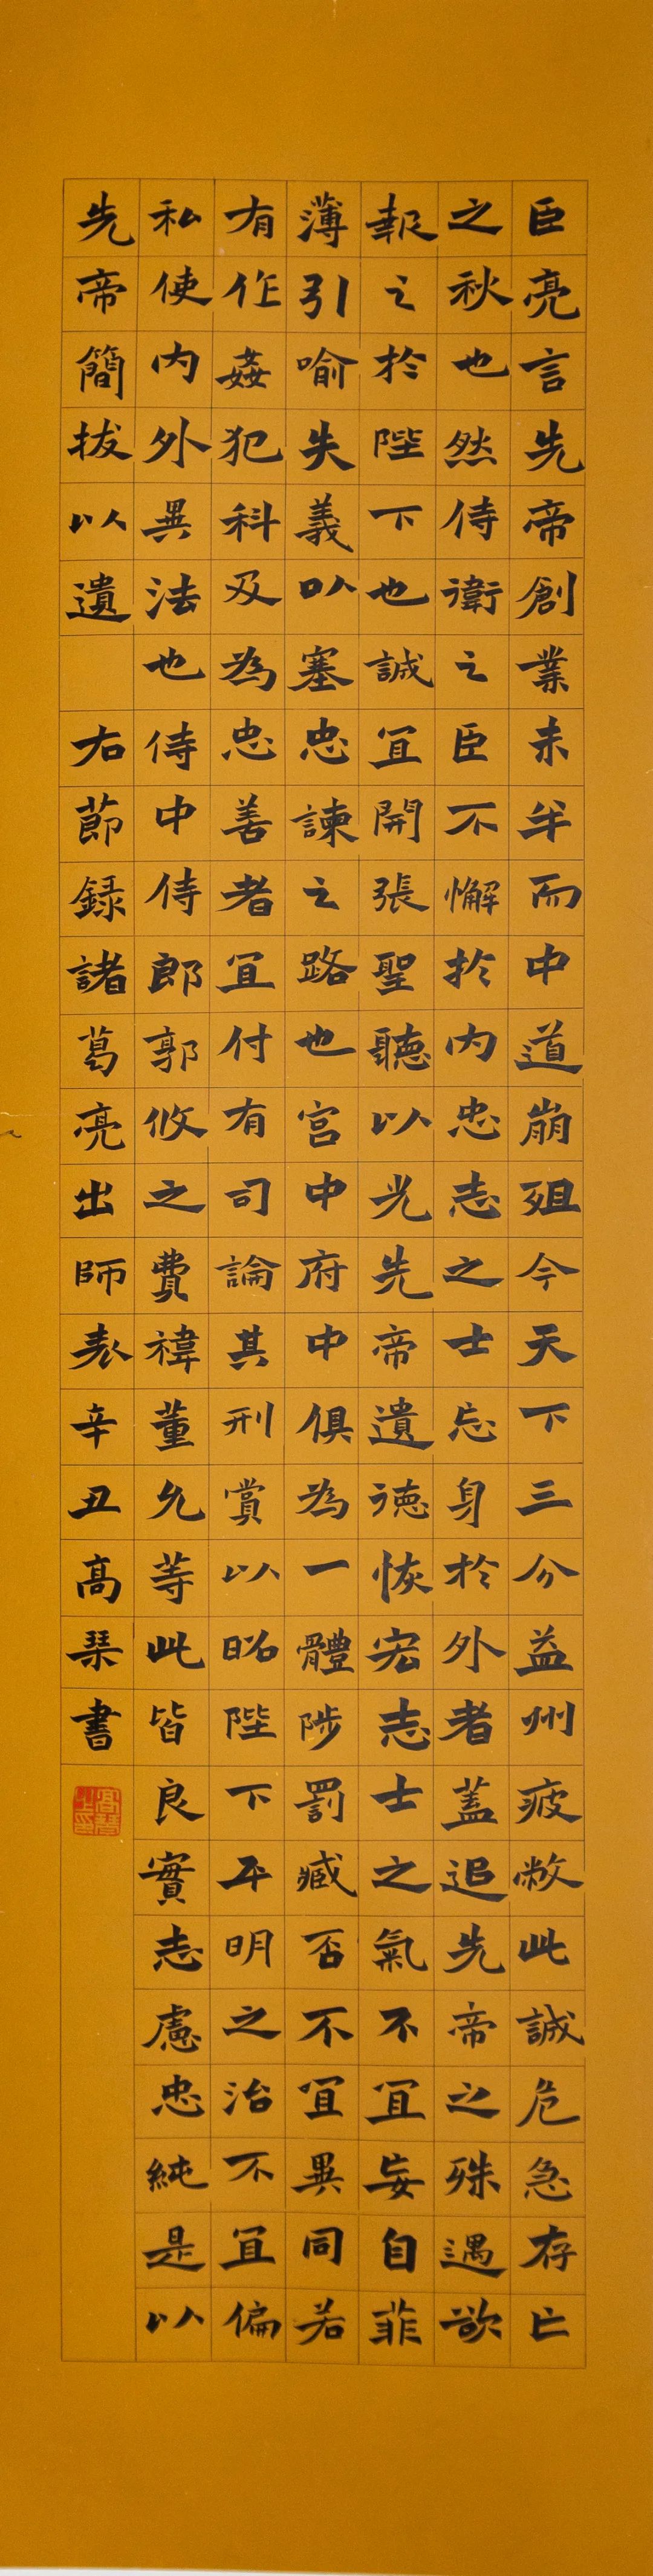 臣亮言先帝創業未半而中道崩殂今天下三分益州疲敝此誠危急存亡
之秋也然侍衛之臣不懈於內忠志之士忘身於外者蓋追先帝之殊遇欲
報之於陛下也誠宜開張聖聽以光先帝遺德恢宏志士之氣不宜妄自菲
薄引喻失義以塞忠諫之路也宮中府中俱為一體陟罰臧否不宜異同若
有作姦犯科及為忠善者宜付有司論其刑賞以昭陛下平明之治不宜偏
私使內外異法也侍中侍郎郭攸之費禕董允等此皆良實志慮忠純是以
先帝簡拔以遺
右節錄諸葛亮出師表辛丑高琹書
高琹之印